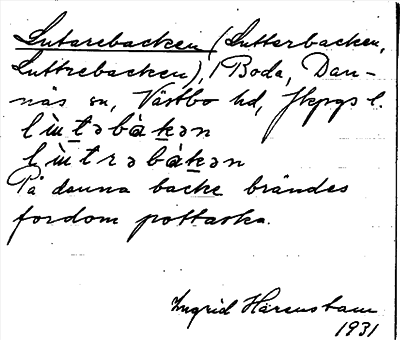 Lutarebacken (Lutterbacken,
Luttrebacken), Boda, Dan-
näs sn, Västbo hd, Jkpgs l.
lùtəbàkən
lùtrəbàkən
På danna backe brändes
fordom pottaska.
Ingrid Härenstam
1931